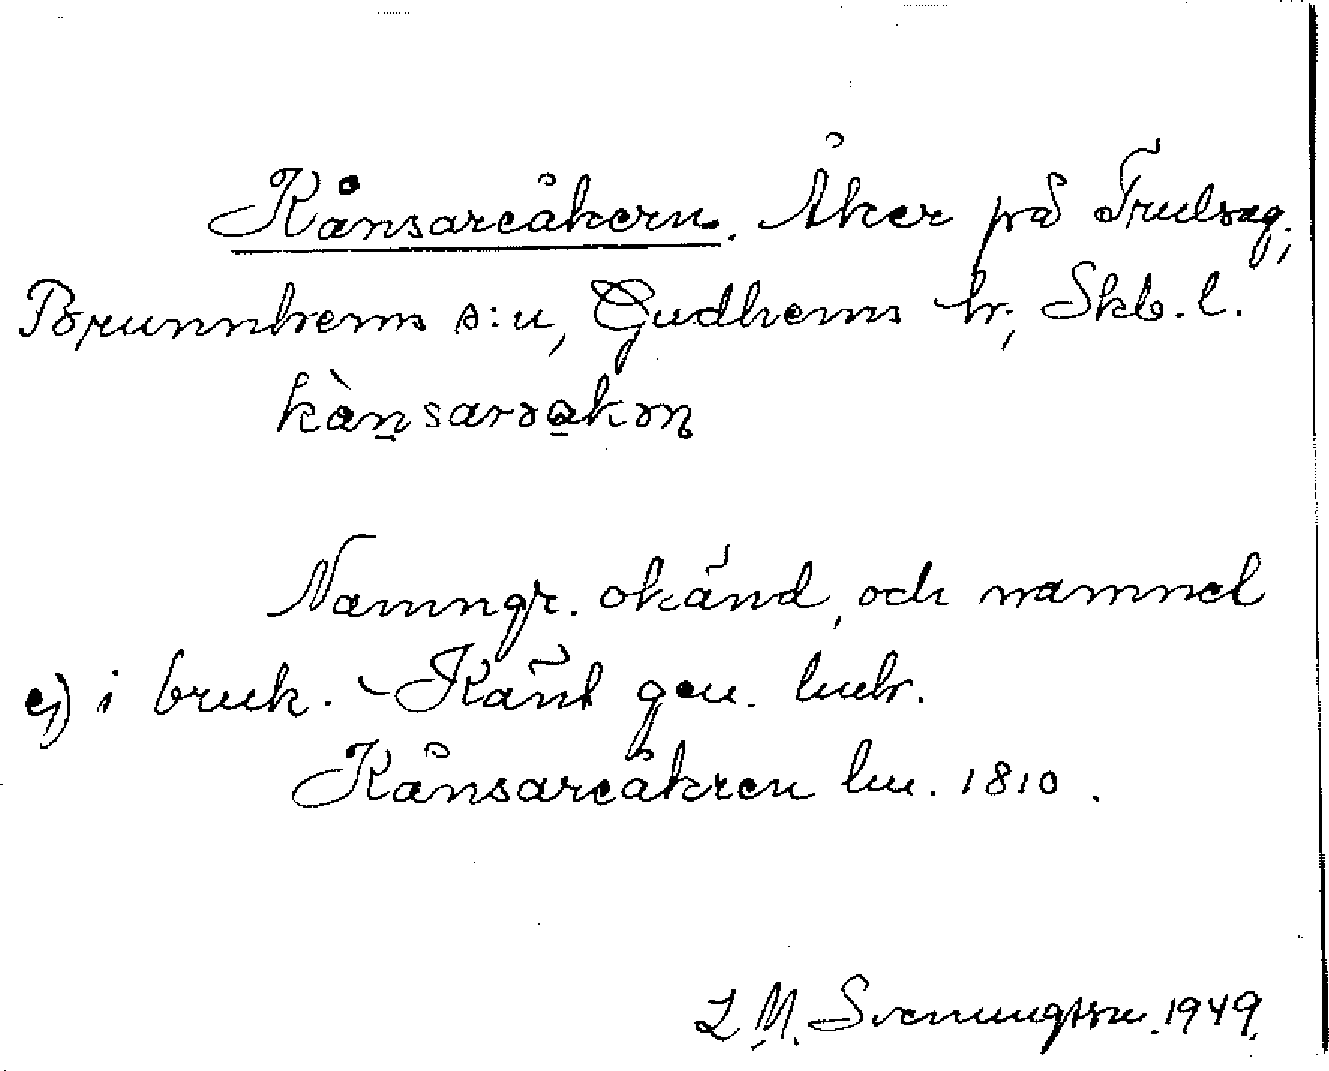 Kånsareåkern. Åker på Trulsag.,
Brunnhems s:n, Gudhems hr., Skb. l.
kànsarəakən
Namngr. okänd, och namnet
ej i bruk. – Känt gen. lmhr.
Kånsareåkren lm. 1810.
L M. Svenungsson. 1949.